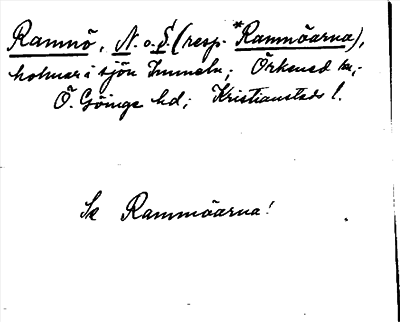 Ramnö, N. o. S. (resp. *Rammöarna),
holmar i sjön Immeln; Örkened sn;
Ö. Göinge hd; Kristianstads l.
Se Rammöarna!